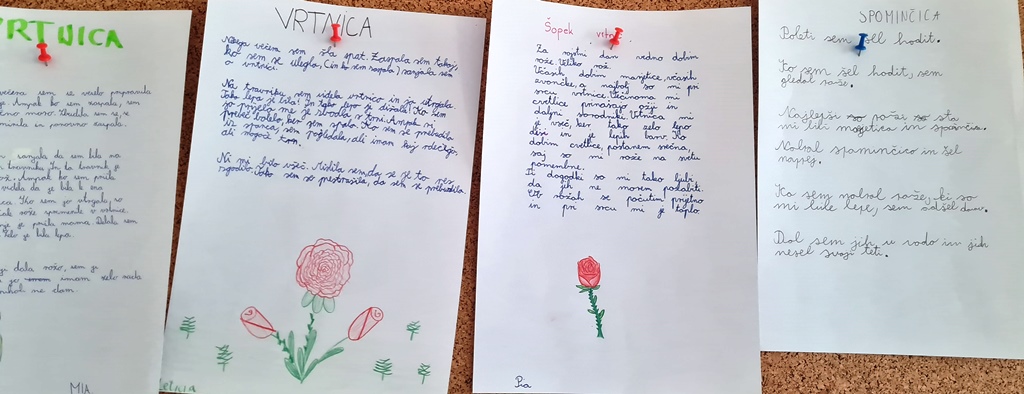 VRTNICA
večera sem se veselo pripravila
Ampak ko sem zaspala, sem
moro. Zbudila sem se, se
in ponovno zaspala.
sanjala da sem bila na
travniku. In ta travnik je
Ampak ko sem prišla
videla da je bila le ena
Ko sem jo utrgala, so
rože spremenile v vrtnice.
je prišla mama. Dala sem
Zelo je bila lepa.
dala rožo, sem ga
imam zelo rada
nikoli ne dam.
MIA
VRTNICA
Nekega večera sem šla spat. Zaspala sem takoj,
ko sem se ulegla. Čim ko sem zaspala, sanjala sem
o vrtnici.
Na travniku sem videla vrtnico in jo utrgala.
Tako lepa je bila! In tako lepo je dišala! Ko sem
jo prijela me je zbodla v trni. Ampak ni
preveč bolelo, ker sem spala. Ko sem se prebudila
iz spanca, sem pogledala, ali imam kaj rdečkega,
ali mogoče trn.
Ni mi bilo všeč. Mislila sem, da se je to res
zgodilo. Tako sem se prestrašila, da sem se prebudila.
Šopek vrtnic
Za rojstni dan vedno dobim
rože. Veliko rož.
Včasih dobim marjetice, včasih
zvončike, a najbolj so mi pri
srcu vrtnice. Večinoma mi
cvetlice prinašajo ožji in
daljni sorodniki. Vrtnica mi
je všeč, ker tako zelo lepo
diši in je lepih barv. Ko
dobim cvetlice, postanem srečna,
saj so mi rože na svetu
pomembne.
Ti dogodki so mi tako ljubi,
da jih ne morem pozabiti.
Ob rožah se počutim prijetno
in pri srcu mi je toplo
Pia
SPOMINČICA
Poleti sem šel hodit.
Ko sem šel hodit, sem
gledal rože.
Najlepši so rožai, so sta
mi bili marjetica in spominčica.
Nabral spominčico in šel
naprej.
Ko sem nabral rože, ki so
mi bile lepe, sem odšel domov.
Dal sem jih v vodo in jih
nesel svoji teti.